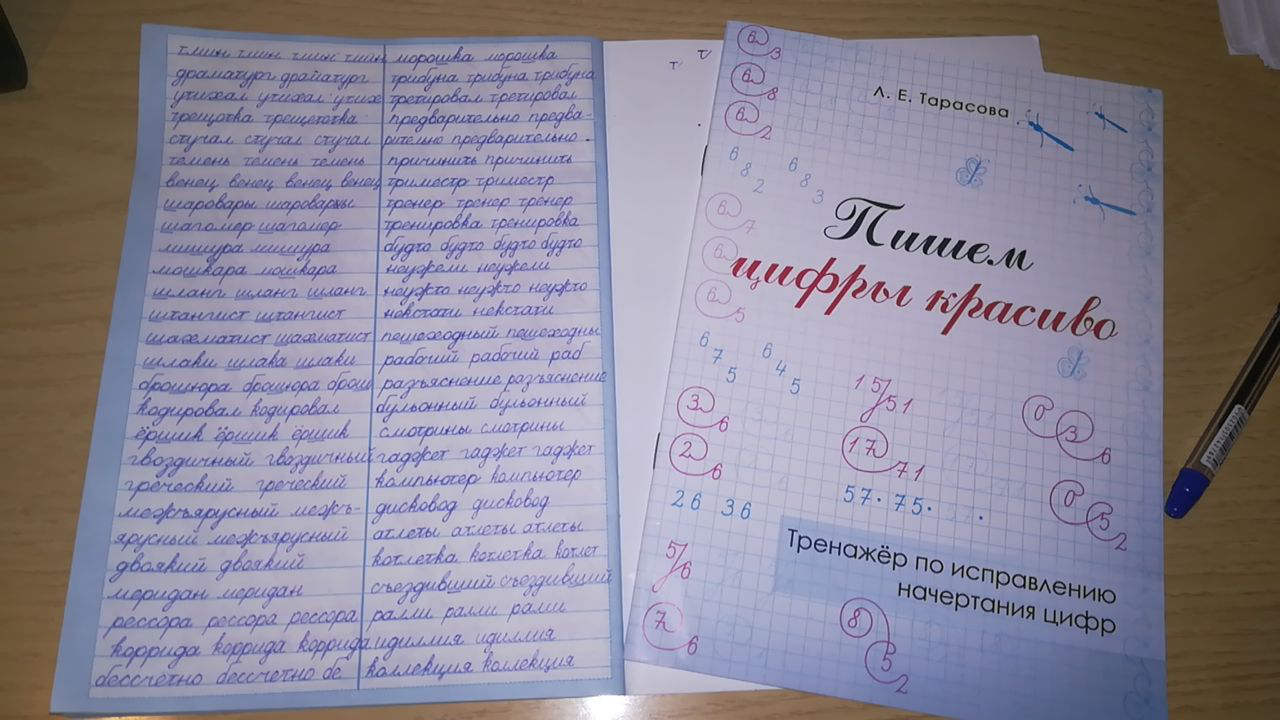 тмин тмин тмин тмин
драматург драматург
утихал утихал утихал
трещотка трещеточка
стучал стучал стучал
темень темень темень
венец венец венец венец
шаровары шаровары
шагомер шагомер
мишура мишура
мошкара мошкара
шланг шланг шланг
штангист штангист
шахматист шахматист
шлаки шлака шлаки
брошюра брошюра брош
кодировал кодировал
ёршик ёршик ёршик
гвоздичный гвоздичный
греческий греческий
межъярусный межъ-
ярусный межъярусный
двоякий двоякий
меридан меридан
рессора рессора рессора
коррида коррида коррида
бессчетно бессчетно бе
морошка морошка
трибуна трибуна трибуна
третировал третировал
предварительно предва-
рительно предварительно.
причинить причинить
триместр триместр
тренер тренер тренер
тренировка тренировка
будто будто будто будто
неужели неужели
неужто неужто неужто
некстати некстати
пешеходный пешеходны
рабочий рабочий раб
разъяснение разъяснение
бульонный бульонный
смотрины смотрины
гаджет гаджет гаджет
компьютер компьютер
дисковод дисковод
атлеты атлеты атлеты
котлетка котлетка котлет
съездивший съездивший
ралли ралли ралли
идиллия идиллия
коллекция коллекция
Л. Е. Тарасова
Пишем
цифры красиво
6 8 2 6 8 3
6 7 5 6 4 5
15 51
17 71
57. 75.
3 6
2 6
26 36
0 3 6
0 5 2
5 6
7 6
8 5 2
Тренажёр по исправлению
начертания цифр